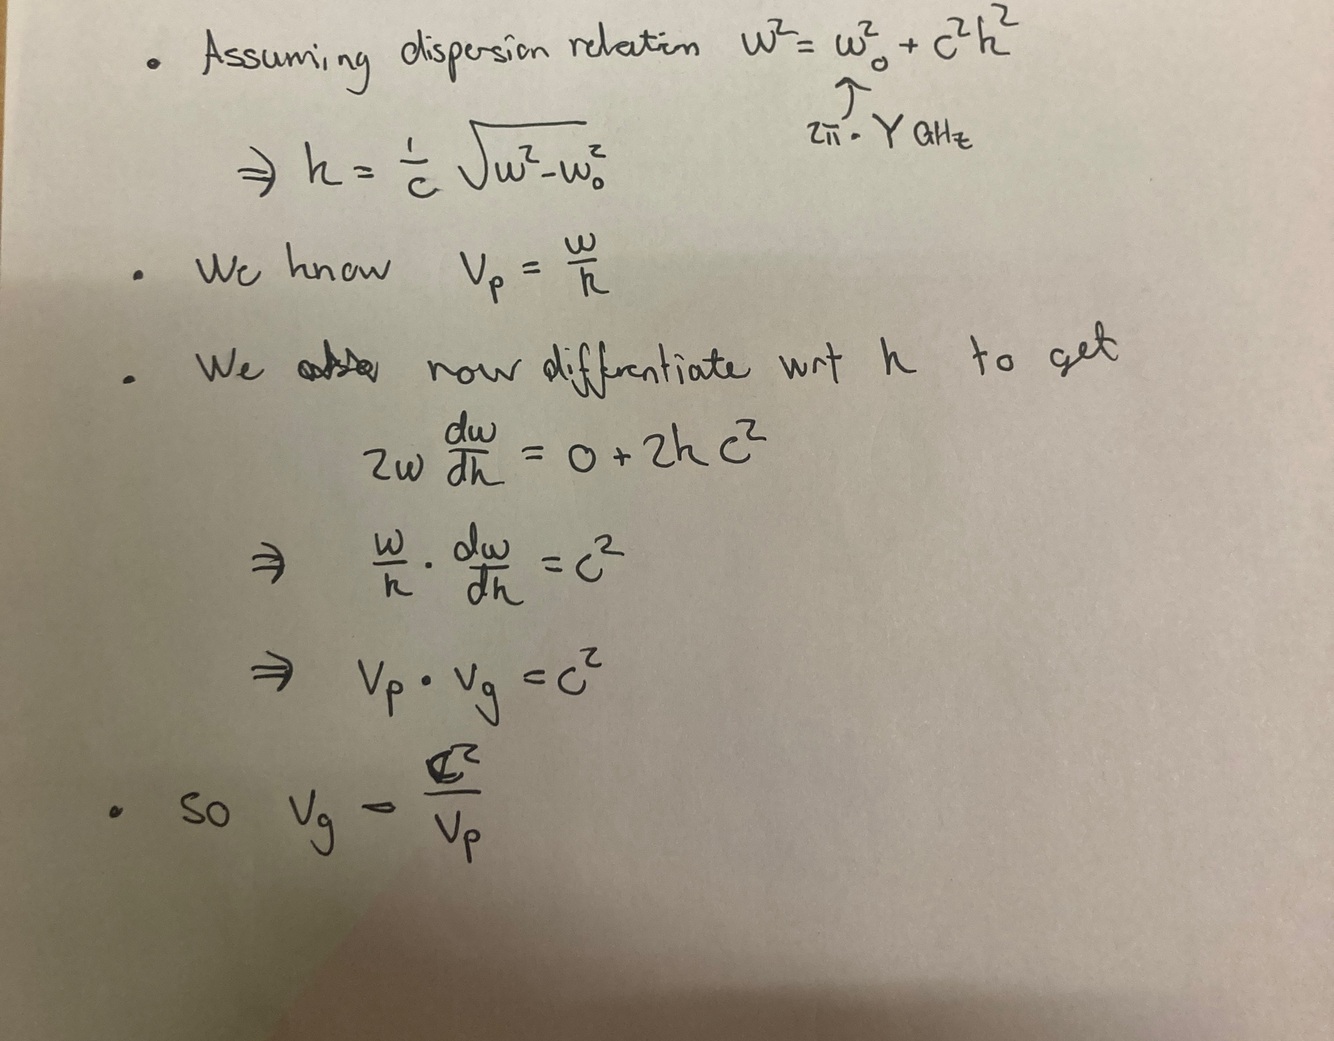 • Assuming dispersion relation w² = w₀² + c²k²
↑
2π · Y GHz
⇒ k = 1/c √(w² - w₀²)
• We know Vp = w/k
• We now differentiate wrt k to get
2w dw/dk = 0 + 2k c²
⇒ w/k · dw/dk = c²
⇒ Vp · Vg = c²
• So Vg = c²/Vp